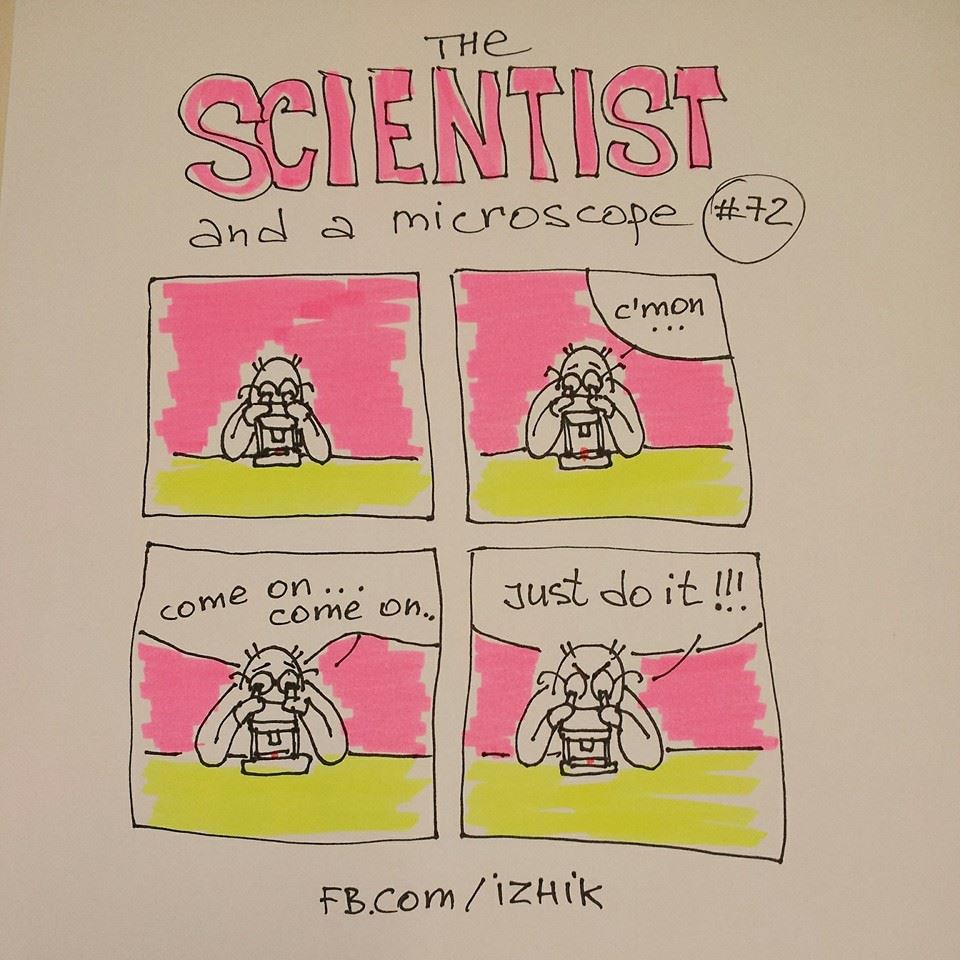 THE
SCIENTIST
and a microscope #72
c'mon
...
come on...
come on..
Just do it !!!
FB.com/izHik